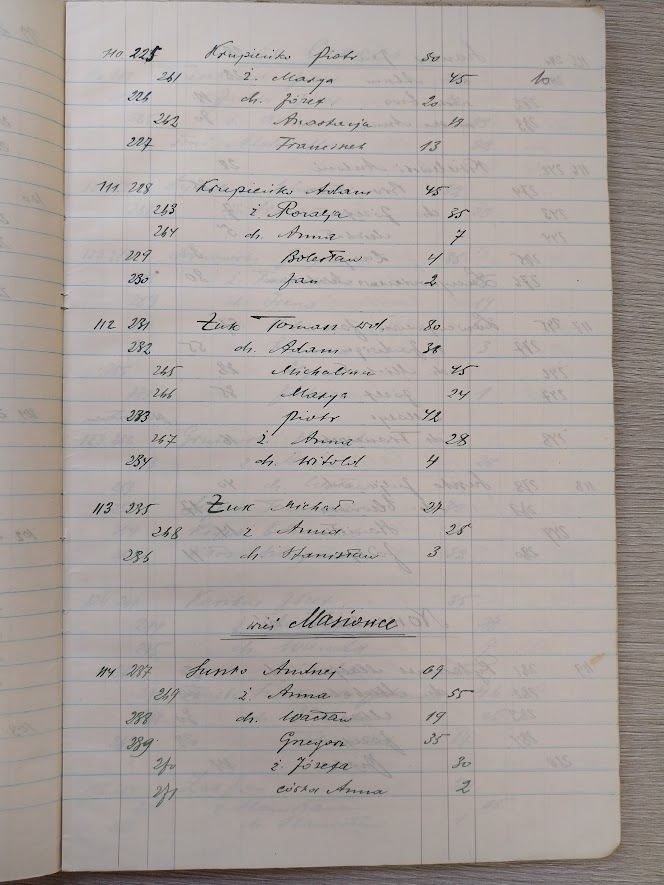 110 225 Krupieńko Piotr 50
261 ż. Marya 45 10
226 ch. Józef 20
262 Anastazja 17
227 Franciszek 13
111 228 Krupieńko Adam 45
263 ż Rozalja 35
264 ch. Anna 7
229 Bolesław 4
230 Jan 2
112 231 Żuk Tomasz wd. 80
232 ch. Adam 38
265 Michalina 45
266 Marya 24
233 Piotr 42
267 ż Anna 28
234 ch. Witold 4
113 235 Żuk Michał 27
268 ż Anna 25
236 ch. Stanisław 3
wieś
114 237 Sunko Andrzej 69
269 ż Anna 55
238 ch. Wacław 19
239 Grzegorz 35
270 ż Józefa 30
271 córka Anna 2